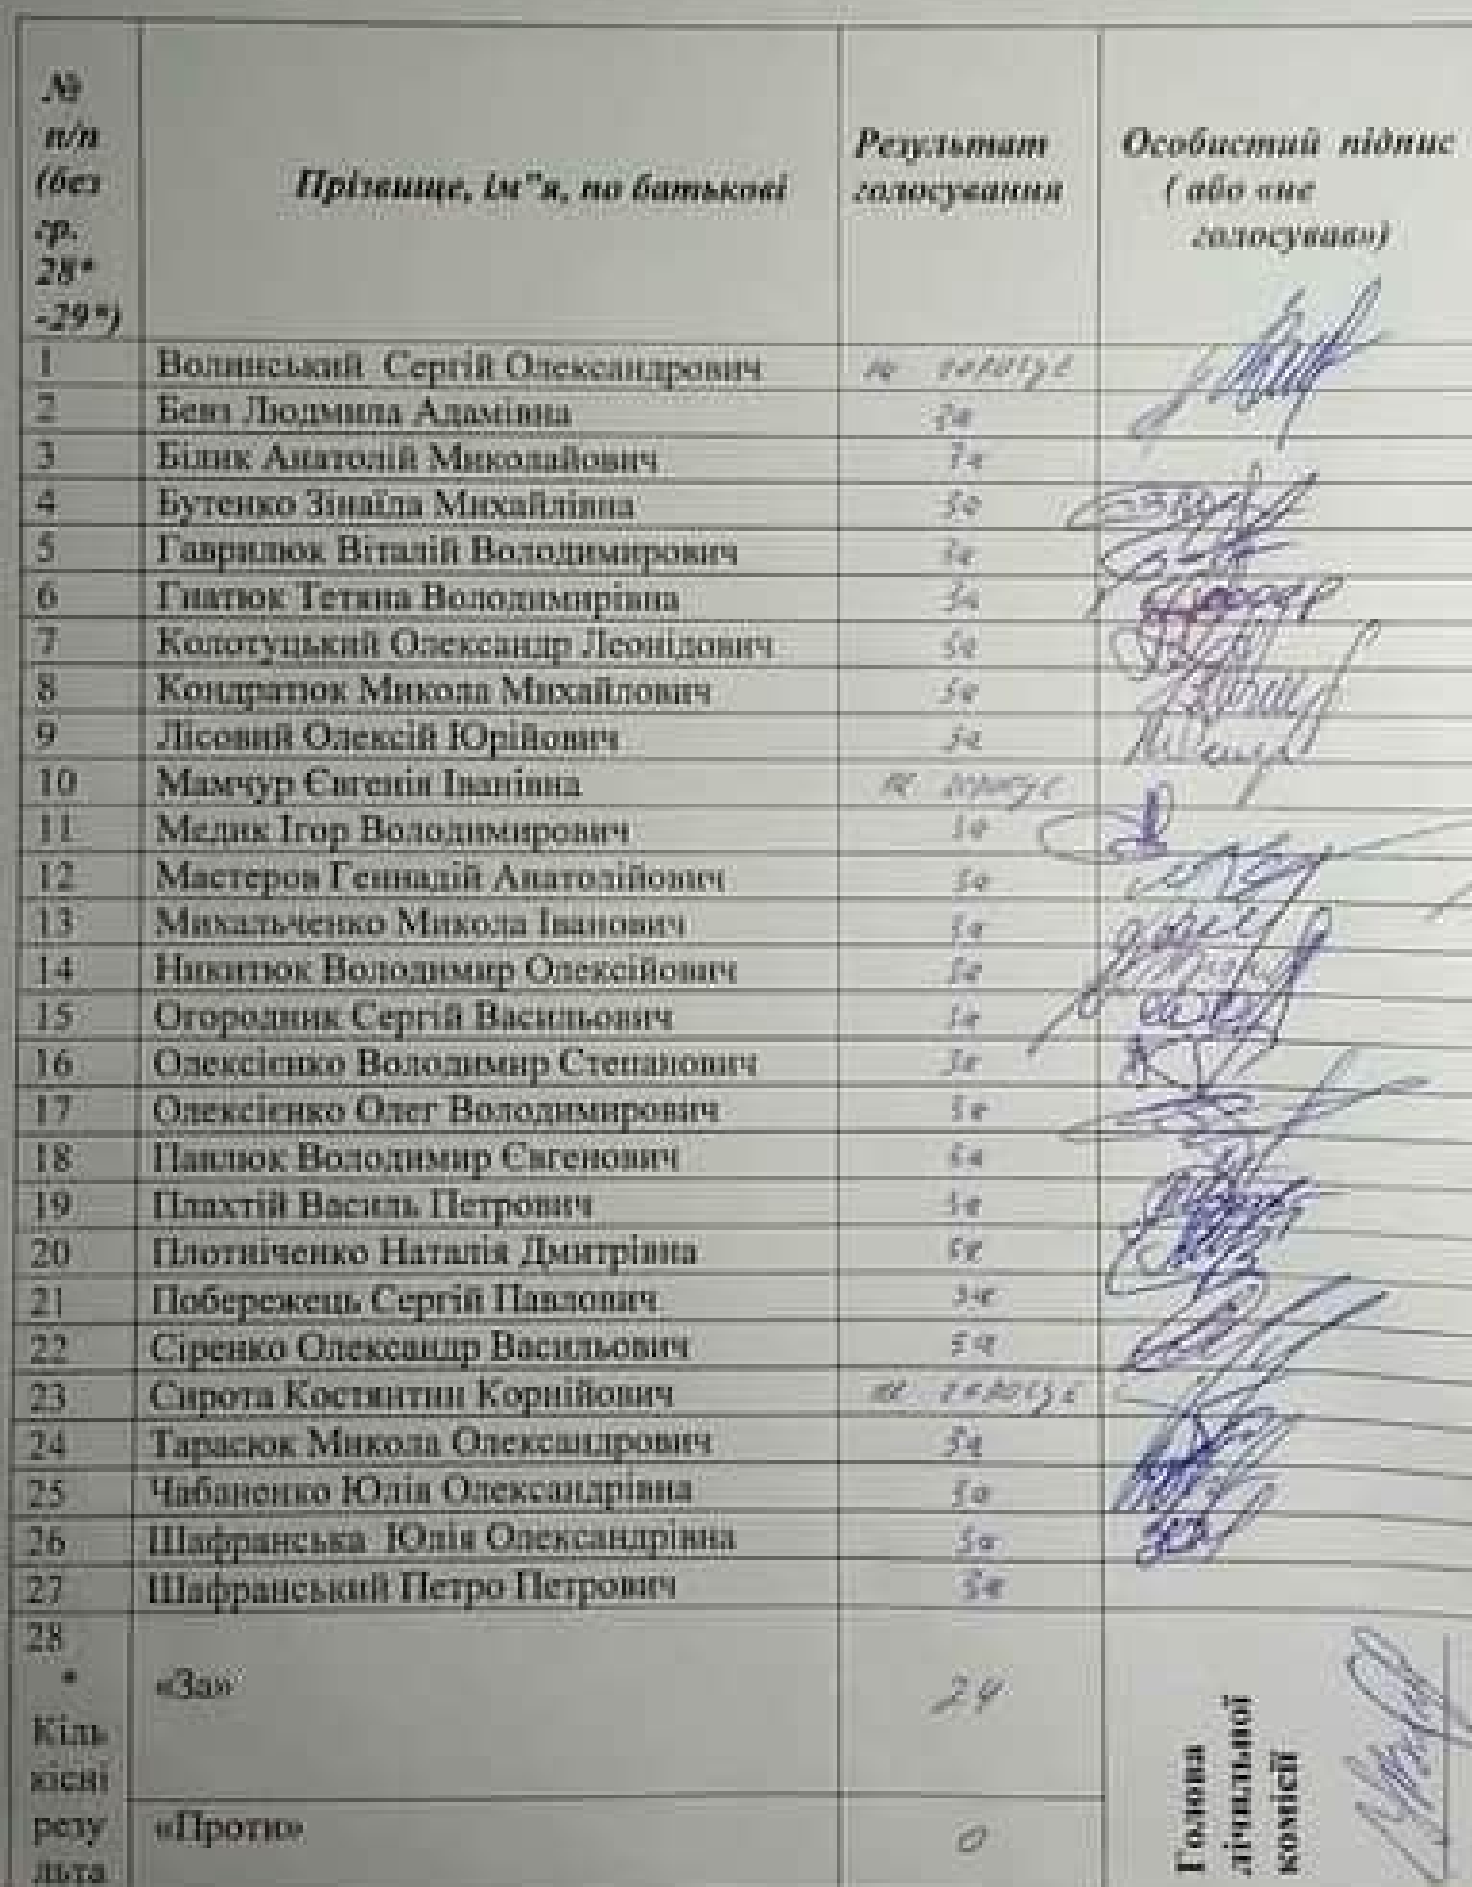 № п/п (без гр. 28* -29*) Прізвище, ім"я, по батькові Результат голосування Особистий підпис ( або «не голосував»)
1 Волинський Сергій Олександрович не голосує
2 Бенз Людмила Адамівна за
3 Білик Анатолій Миколайович за
4 Бутенко Зінаїла Михайлівна за
5 Гаврилюк Віталій Володимирович за
6 Гнатюк Тетяна Володимирівна за
7 Колотуцький Олександр Леонідович за
8 Кондратюк Микола Михайлович за
9 Лісовий Олексій Юрійович за
10 Мамчур Євгенія Іванівна не голосує
11 Медик Ігор Володимирович за
12 Мастеров Геннадій Анатолійович за
13 Михальченко Микола Іванович за
14 Никитюк Володимир Олексійович за
15 Огородник Сергій Васильович за
16 Олексієнко Володимир Степанович за
17 Олексієнко Олег Володимирович за
18 Павлюк Володимир Євгенович за
19 Плахтій Василь Петрович за
20 Плотніченко Наталія Дмитрівна за
21 Побережець Сергій Павлович за
22 Сіренко Олександр Васильович за
23 Сирота Костянтин Корнійович не голосує
24 Тарасюк Микола Олександрович за
25 Чабаненко Юлія Олександрівна за
26 Шафранська Юлія Олександрівна за
27 Шафранський Петро Петрович за
28 * Кіль кісні резу льта «За» 24
«Проти» 0
Голова лічильної комісії